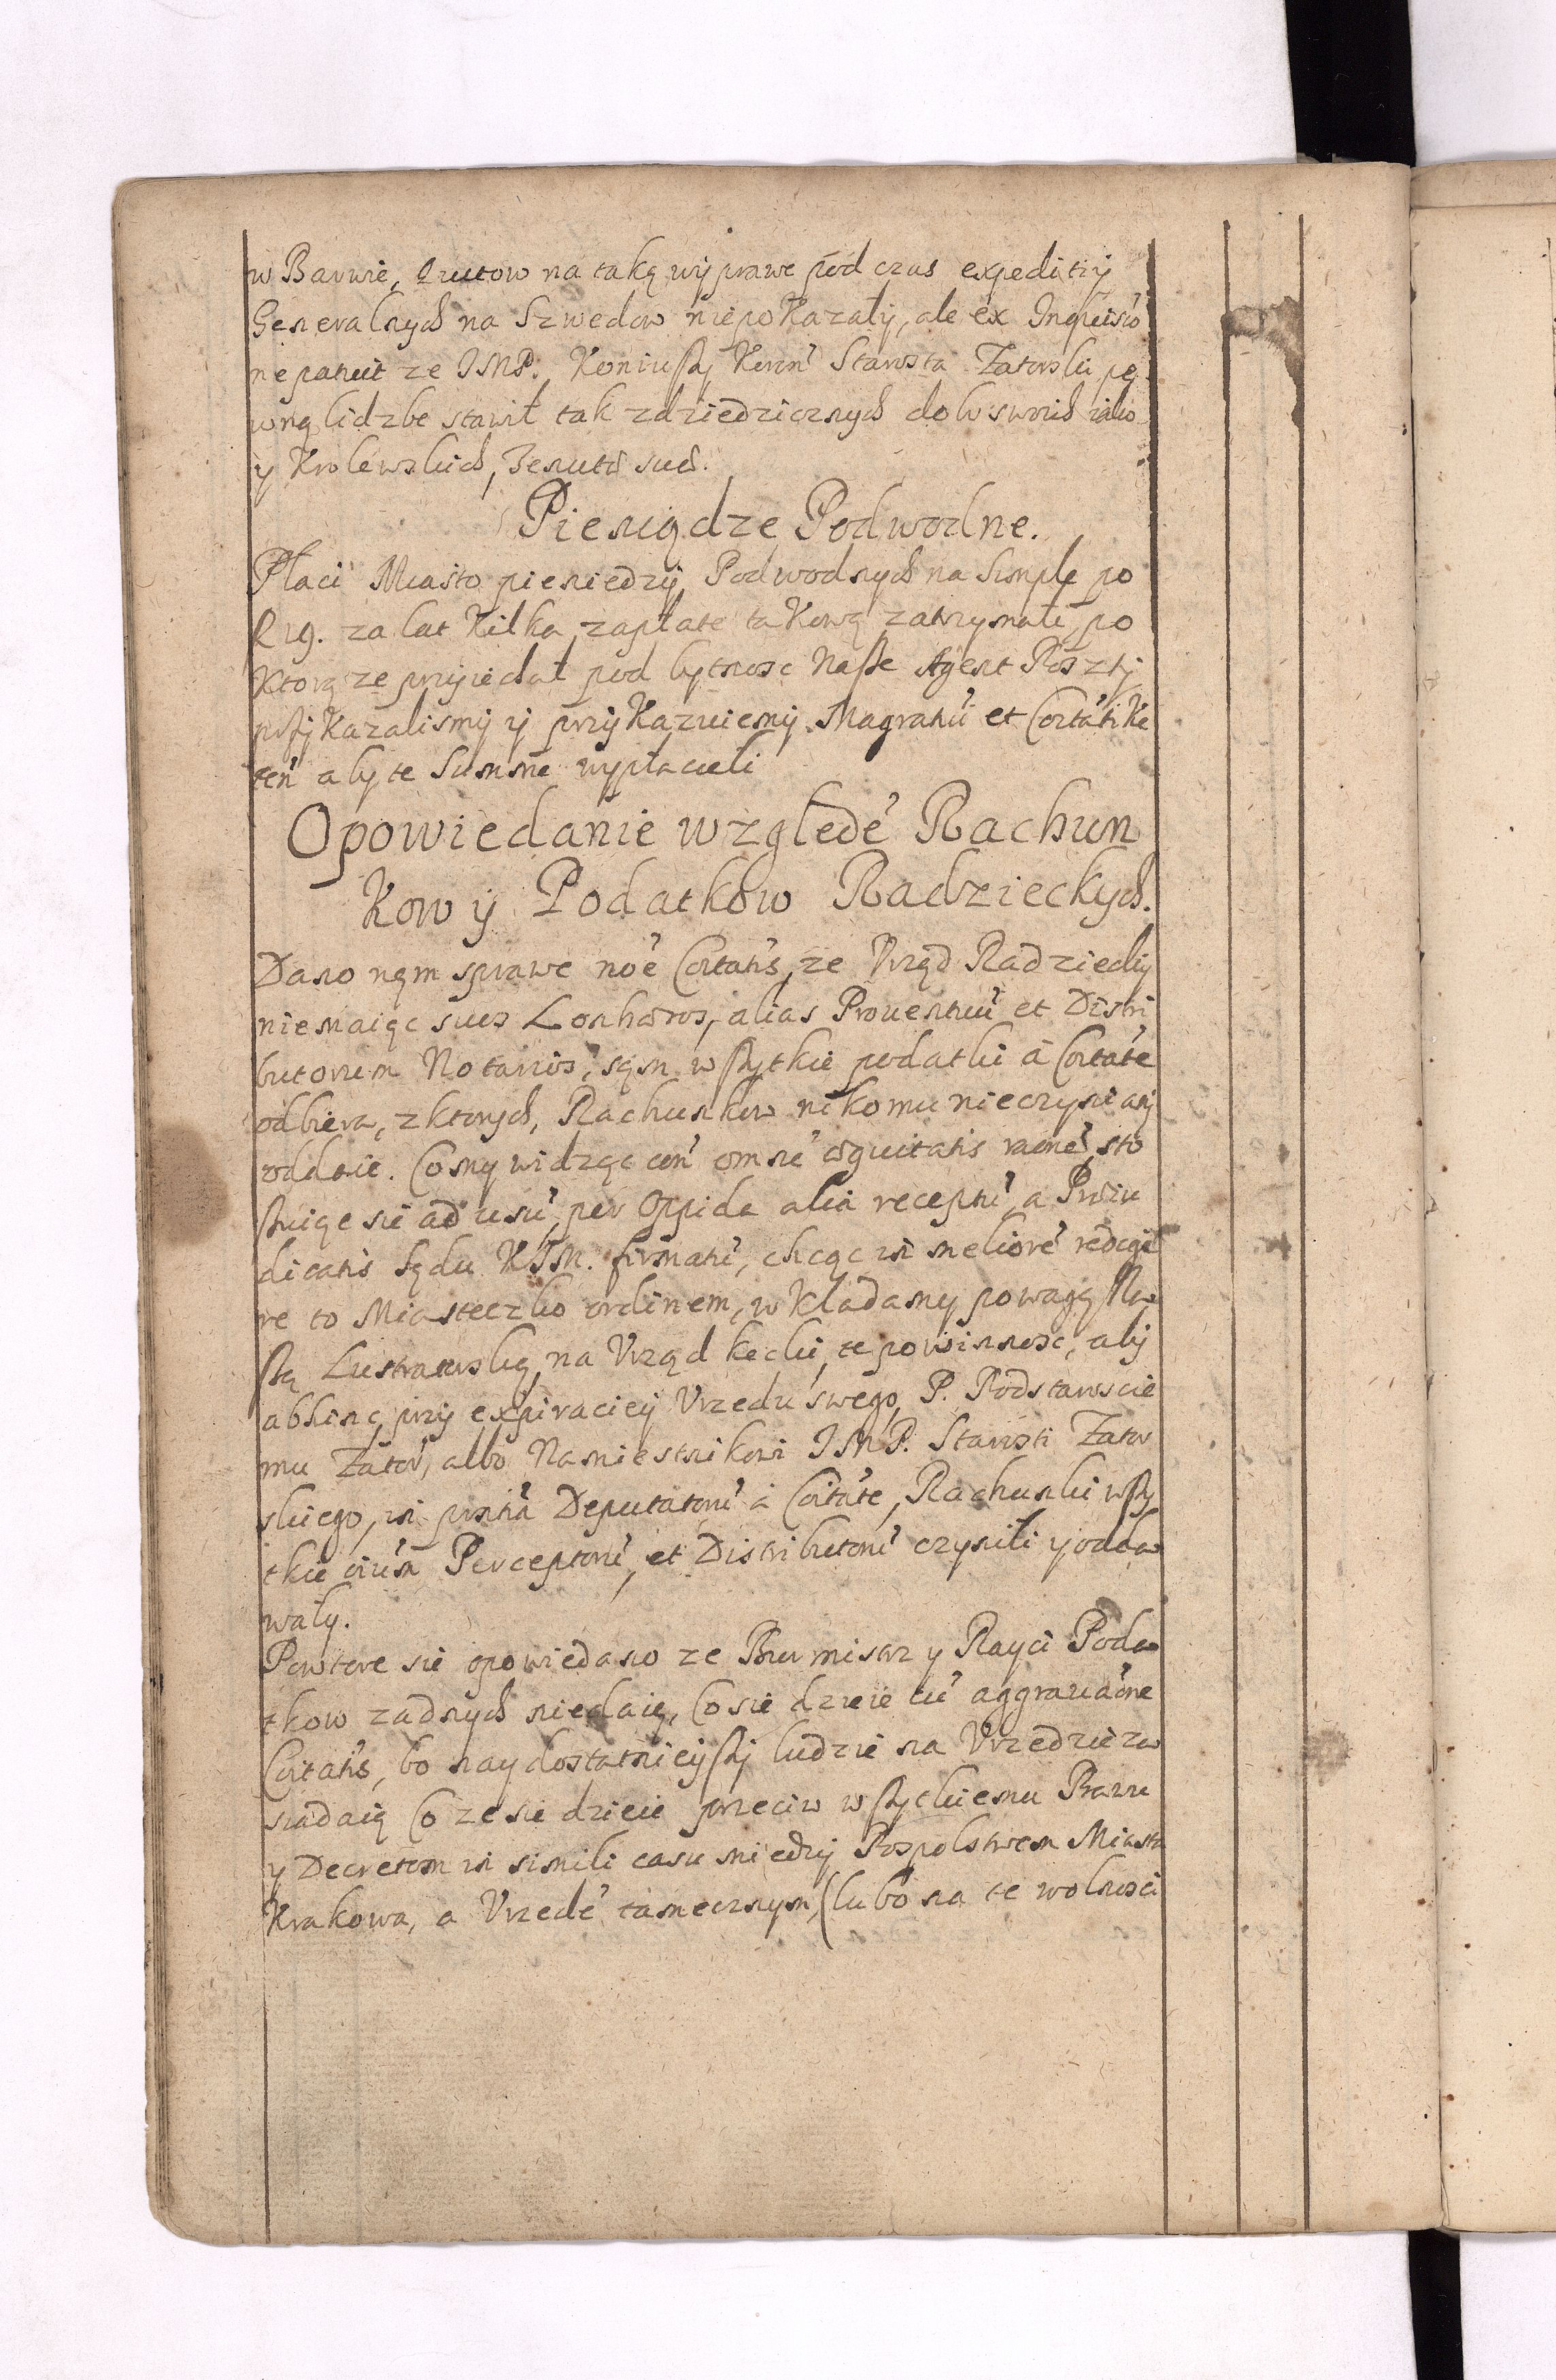 w Barwie, Qwitow na taką wyprawe pod czas expeditiy
Generalnych na Szwedow niepokazały, ale ex Inquisitio
ne patuit ze JMP. Koniuszy Koron̄ Starosta Zatorski pe
wną lidzbe stawił tak zdziedzicznych dobr swoich iako
y Krolewskich, Tenutis suis.
Pieniądze Podwodne.
Płaci Miasto pieniedzy Podwodnych na Simple po
za lat kilka zapłate takową zatrzymali, po
ktorą ze przyiechał pod bytnosc Nasze Agent Poszty
przykazalismy y przykazuiemy Magratui et Coitati Ke
cen̄ aby te Summe wypłacieli
Opowiedanie względē Rachun
kow y Podatkow Radzieckych.
Dano nąm sprawe noē Coitatis, ze Vrząd Radziecky
niemaiąc suos Lonheros, alias Prouentuū et Distri
butorum Notarios, sąm wszytkie podatki á Coitate
odbiera, z ktorych, Rachunkow nikomu nieczyni any
oddaie. Co my widząc con̄ omnē æquitatis raonē, sto
suiąc się ad usū, per Oppida alia receptū, a Præiu
dicatis Sądu KJM. firmatū, chcąc in meliorē redige
re to Miasteczko ordinem, wkładamy powagą Na
szą Lustratorską, na Vrząd kęcki, te powinnosc, aby
abhinc przy expiraciey Vrzedu swego, P. Podstaroscie
mu Zator̄, albo Namiestnikowi JMP. Starosti Zator
skiego, in pnt̄ia Deputatorū á Coitate, Rachunki wszy
tkie oium̄ Perceptorū, et Distributorū czynili y odda
waly.
Powtore sie opowiedano ze Burmistrz y Rayci Poda
tkow zadnych niedaią, Co sie dzieie cū aggrauaōne
Coitatis, bo naydostatnieyszy ludzie na Vrzedzie za
siadaią Co ze sie dzieie przeciw wszyckiemu Prawu
y Decretom in simili casu miedzy Pospolstwem Miasta
Krakowa, a Vrzedē tamecznym, (lubo na te wolnosci